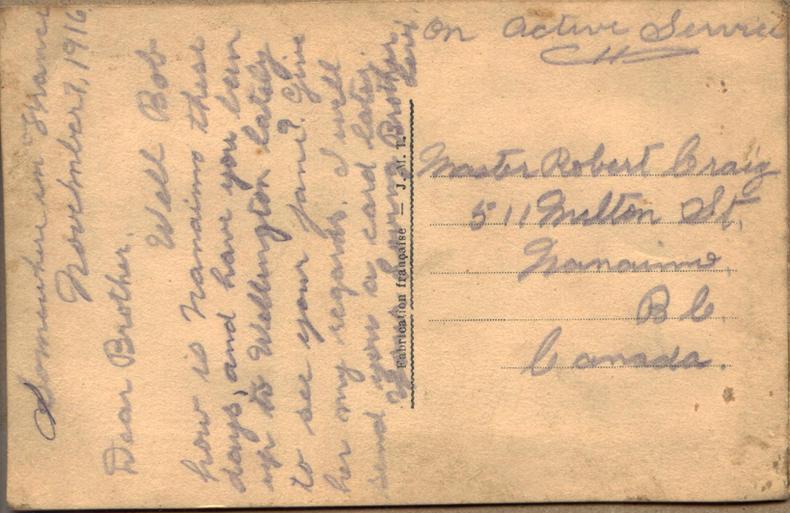 Somewhere in France
November 7, 1916
Dear Brother
Well Bob
how is Nanaimo these
days, and have you been
up to Wellington lately
to see your Jane? Give
her my regards. I will
send you a card later.
Your loving Brother
Fabrication française — J. M. T.
On Active Service
Master Robert Craig
511 Milton St.
Nanaimo,
B C.
Canada.